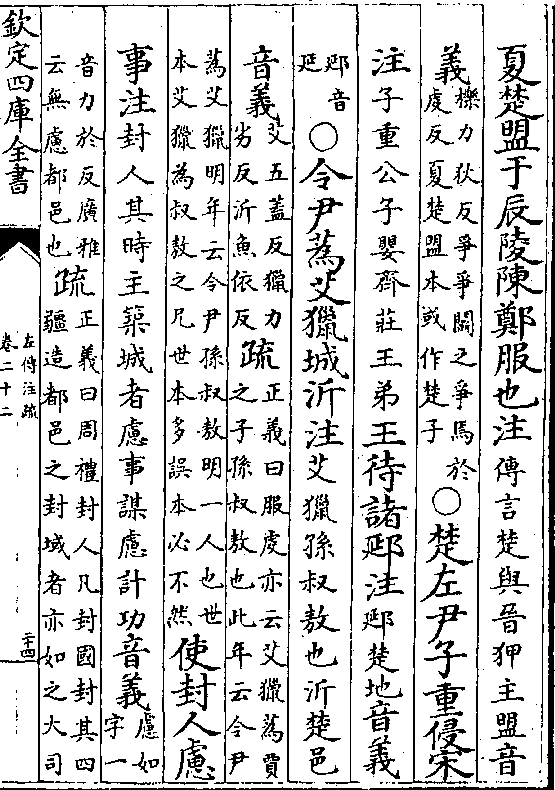 夏楚盟于辰陵陳鄭服也注傳言楚與晉狎主盟音
義櫟力狄反爭爭鬭之爭焉於
虔反夏楚盟本或作楚子○楚左尹子重侵宋
注子重公子嬰齊莊王弟王待諸郔注郔楚地音義
郔音
延○令尹蒍艾獵城沂注艾獵孫叔敖也沂楚邑
音義艾五蓋反獵力
劣反沂魚依反疏正義曰服虔亦云艾獵蒍賈
之子孫叔敖也此年云令尹
蒍艾獵明年云令尹孫叔敖明一人也世
本艾獵為叔敖之兄世本多誤本必不然使封人慮
事注封人其時主築城者慮事謀慮計功音義慮如
字一
音力於反廣雅
云無慮都邑也疏正義曰周禮封人凡封國封其四
疆造都邑之封域者亦如之大司
欽定四庫全書
左傳注疏
卷二十二
二十四